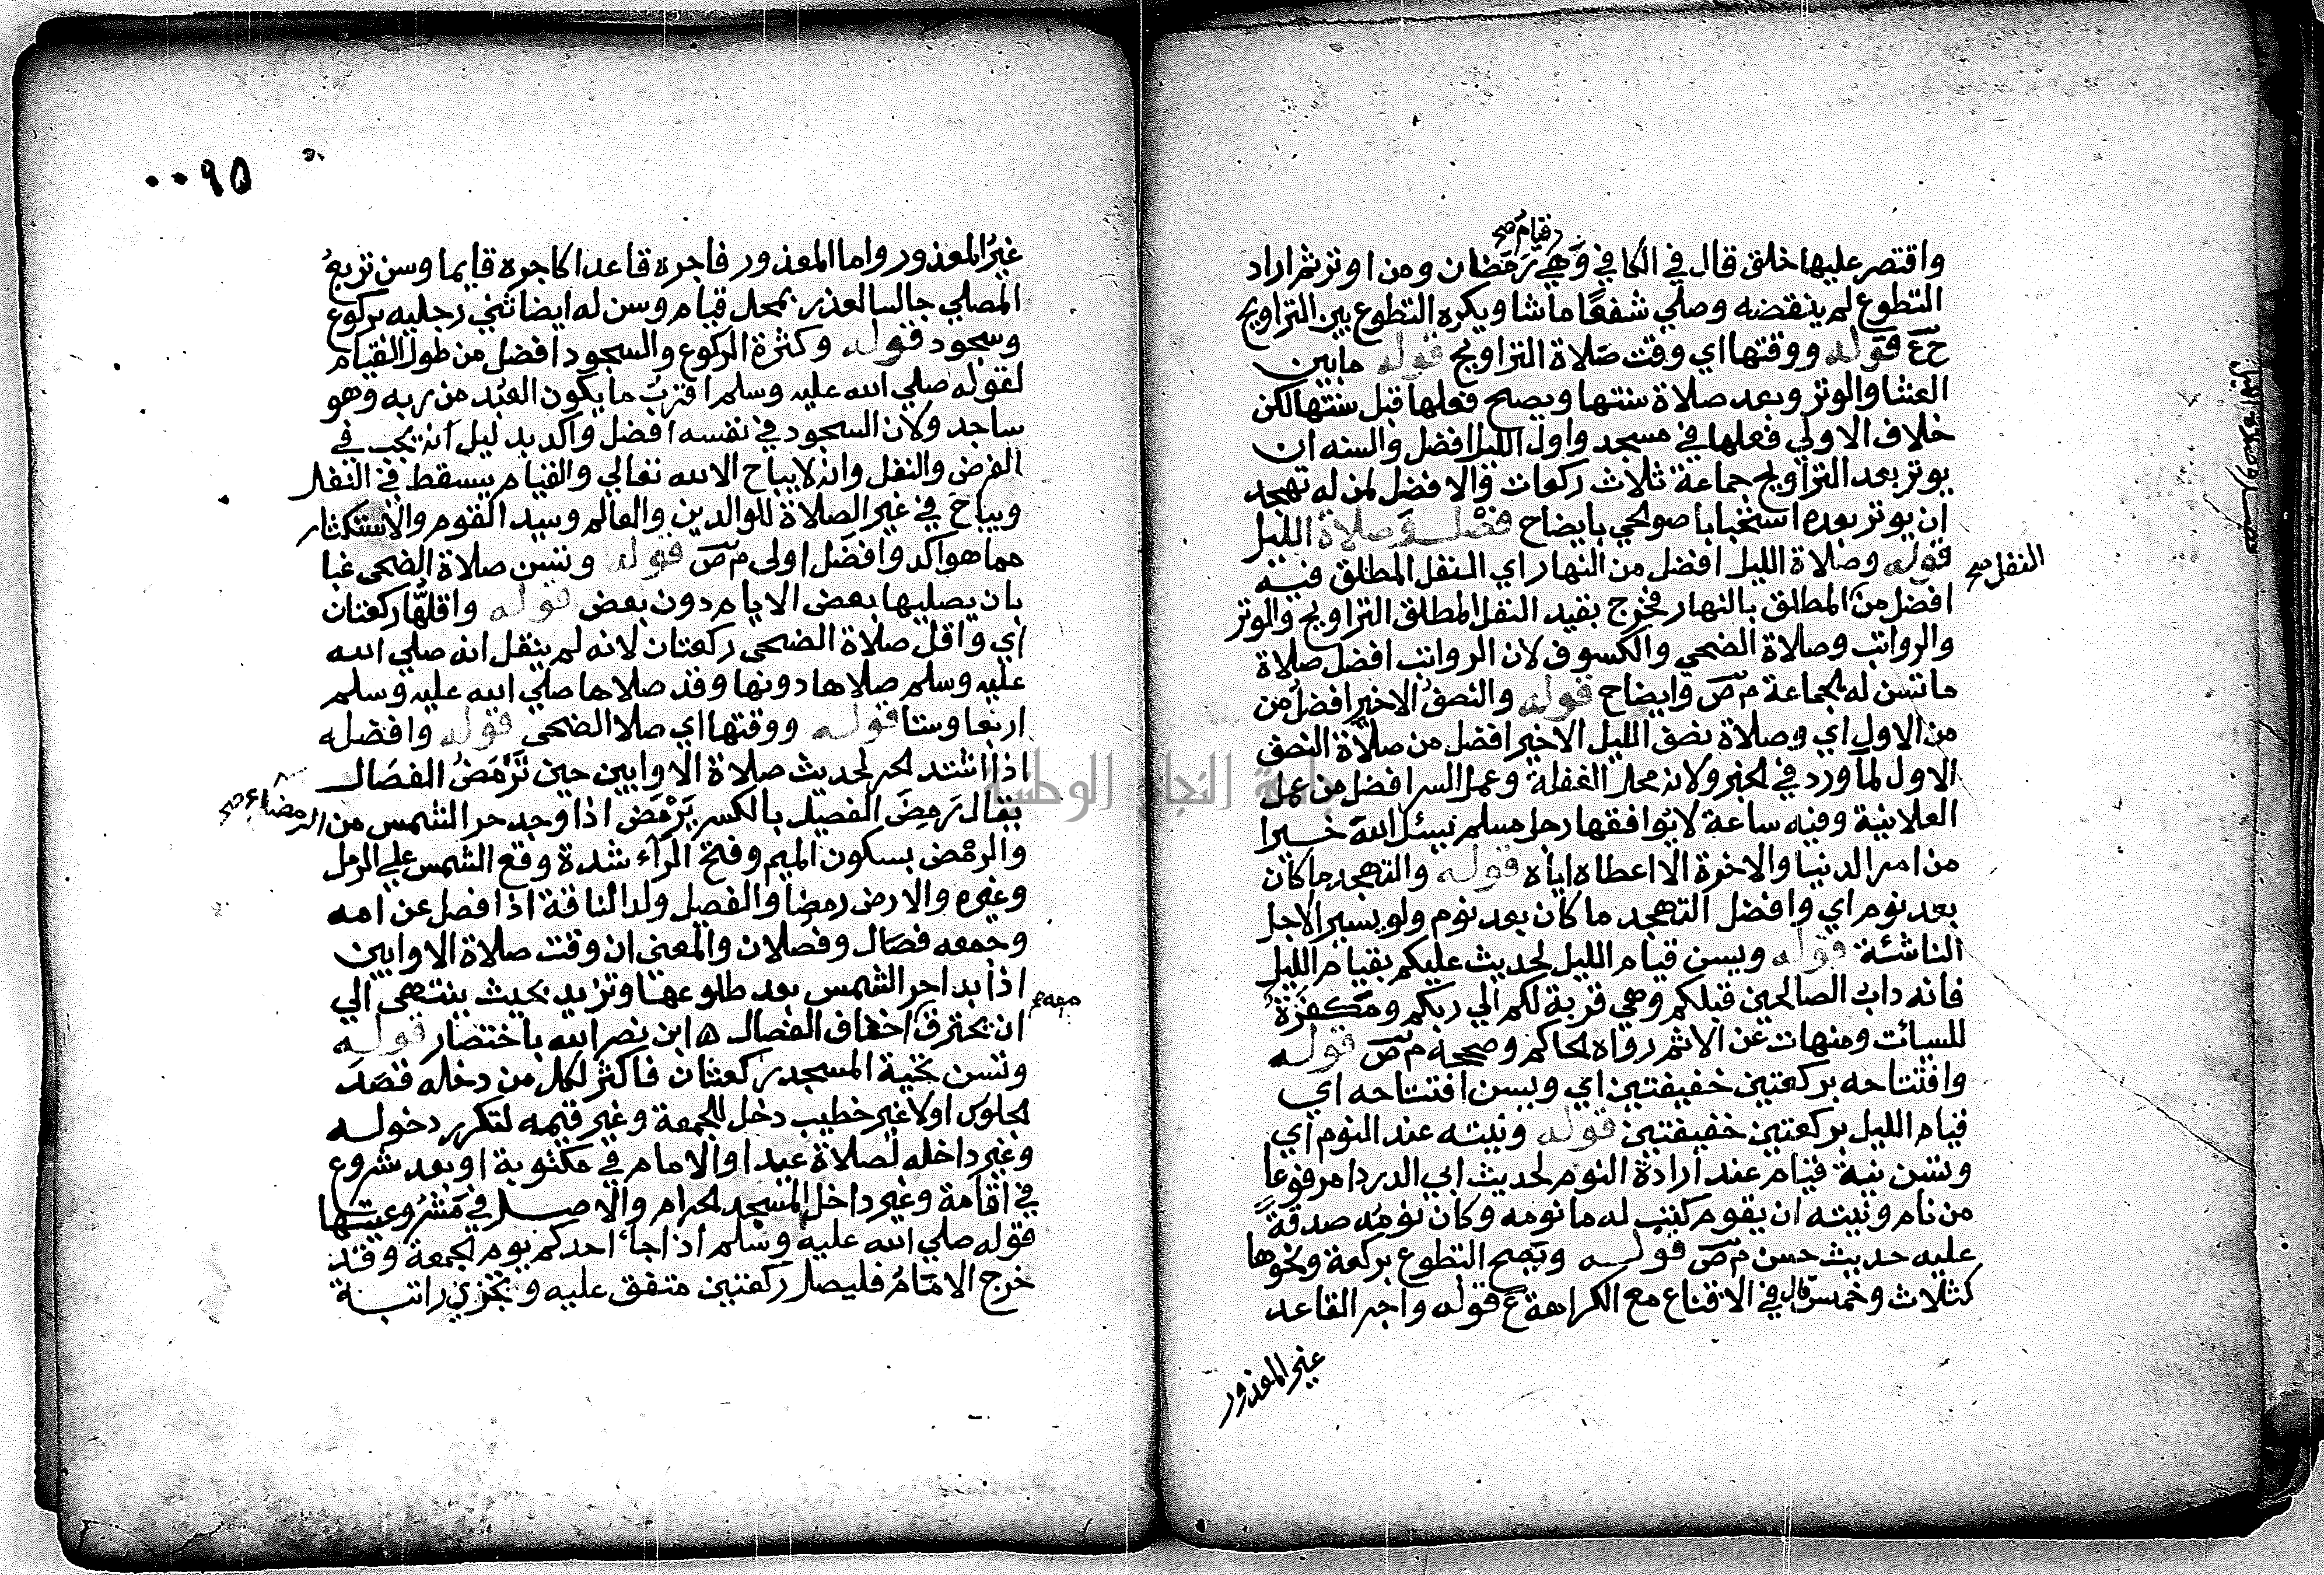 وقيام صح
واقتصر عليها خلق قال في الكافي وهي رمضان ومن اوتر ثم اراد
التطوع لم ينقضه وصلي شفعًا ماشا ويكره التطوع بين التراويح
ح ع قوله ووقتها اي وقت صلاة التراويح قوله مابين
العشا والوتر وبعد صلاة سنتها ويصح فعلها قبل سنتها لكن
خلاف الاولي فعلها في مسجد واول الليل افضل والسنه ان
يوتر بعد التراويح جماعة ثلاث ركعات والافضل لمن له تهجد
ان يوتر بعده استحبابا صوالحي بايضاح فصل وصلاة الليل
قوله وصلاة الليل افضل من النهار اي النفل المطلق فيه
النفل صح
افضل من المطلق بالنهار فخرج بقيد النفل المطلق التراويح والوتر
والرواتب وصلاة الضحي والكسوف لان الرواتب افضل صلاة
ماتسن له الجماعة م ص وايضاح قوله والنصف الاخير افضل من
من الاول اي وصلاة نصف الليل الاخير افضل من صلاة النصف
الاول لما ورد في الخبر ولانه محل الغفلة وعمل السر افضل من عمل
العلانية وفيه ساعة لايوافقها رجل مسلم يسئل الله خيرا
من امر الدنيا والاخرة الا اعطاه اياه قوله والتهجد ماكان
بعد نوم اي وافضل التهجد ماكان بعد نوم ولو يسير الاجل
الناشئة قوله ويسن قيام الليل لحديث عليكم بقيام الليل
فانه داب الصالحين قبلكم وهي قربة لكم الي ربكم ومكفرة
للسيات ومنهات عن الاثم رواه الحاكم وصححه م ص قوله
وافتتاحه بركعتين خفيفتين اي ويسن افتتاحه اي
قيام الليل بركعتين خفيفتين قوله ونيته عند النوم اي
وتسن نية قيام عند ارادة النوم لحديث ابي الدردا مرفوعا
من نام ونيته ان يقوم كتب له ما نومه وكان نومه صدقة
عليه حديث حسن م ص قوله ويصح التطوع بركعة ونحوها
كثلاث وخمس قال في الاقناع مع الكراهة ع قوله واجر القاعد
غير المعذور
٠٠٩٥
غير المعذور واما المعذور فاجره قاعدا كاجره قايما وسن تربع
المصلي جالسا لعذر بمحل قيام وسن له ايضا ثني رجليه بركوع
وسجود قوله وكثرة الركوع والسجود افضل من طول القيام
لقوله صلي الله عليه وسلم اقرب ما يكون العبد من ربه وهو
ساجد ولان السجود في نفسه افضل واكد بدليل انه يجب في
الفرض والنفل وانه لايباح الا لله تعالي والقيام يسقط في النفل
ويباح في غير الصلاة للوالدين والعالم وسيد القوم والاستكثار
مما هو اكد وافضل اولى م ص قوله وتسن صلاة الضحى غبا
بان يصليها بعض الايام دون بعض قوله واقلها ركعتان
اي واقل صلاة الضحى ركعتان لانه لم ينقل انه صلي الله
عليه وسلم صلاها دونها وقد صلاها صلي الله عليه وسلم
اربعا وستا قوله ووقتها اي صلا الضحى قوله وافضله
اذا اشتد الحر لحديث صلاة الاوابين حين ترمض الفصال
يقال رمض الفصيل بالكسر يرمض اذا وجد حر الشمس من الرمضاء صح
والرمض بسكون الميم وفتح الراء شدة وقع الشمس علي الرمل
وغيره والارض رمضا والفصل ولد الناقة اذا فصل عن امه
وجمعه فصال وفصلان والمعنى ان وقت صلاة الاوابين
اذا بدا حر الشمس بعد طلوعها وتزيد بحيث ينتهى الي
ان يحترق اخفاف الفصال ه ابن نصر الله باختصار قوله
وتسن تحية المسجد ركعتان فاكثر لكل من دخله قصد
الجلوس اولا غير خطيب دخل للجمعة وغير قيمه لتكرر دخوله
وغير داخله لصلاة عيد او الامام في مكتوبة او بعد شروع
في اقامة وغير داخل المسجد الحرام والاصل في مشروعيتها
قوله صلي الله عليه وسلم اذا جاء احدكم يوم الجمعة وقد
خرج الامام فليصل ركعتين متفق عليه وتجزي راتبة